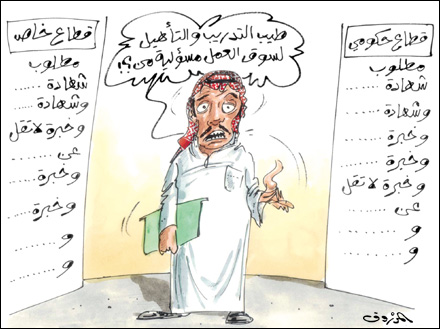 قطاع حكومي
مطلوب
شهادة .....
وشهادة .....
وخبرة .....
وخبرة .....
وخبرة لا تقل
عن .......
و ........
و ........
طيب التدريب والتأهيل
لسوق العمل مسؤلية مى ؟!
قطاع خاص
مطلوب
شهادة .....
وشهادة .....
وخبرة لا تقل
عن .......
وخبرة .....
وخبرة .....
و ........
و ........